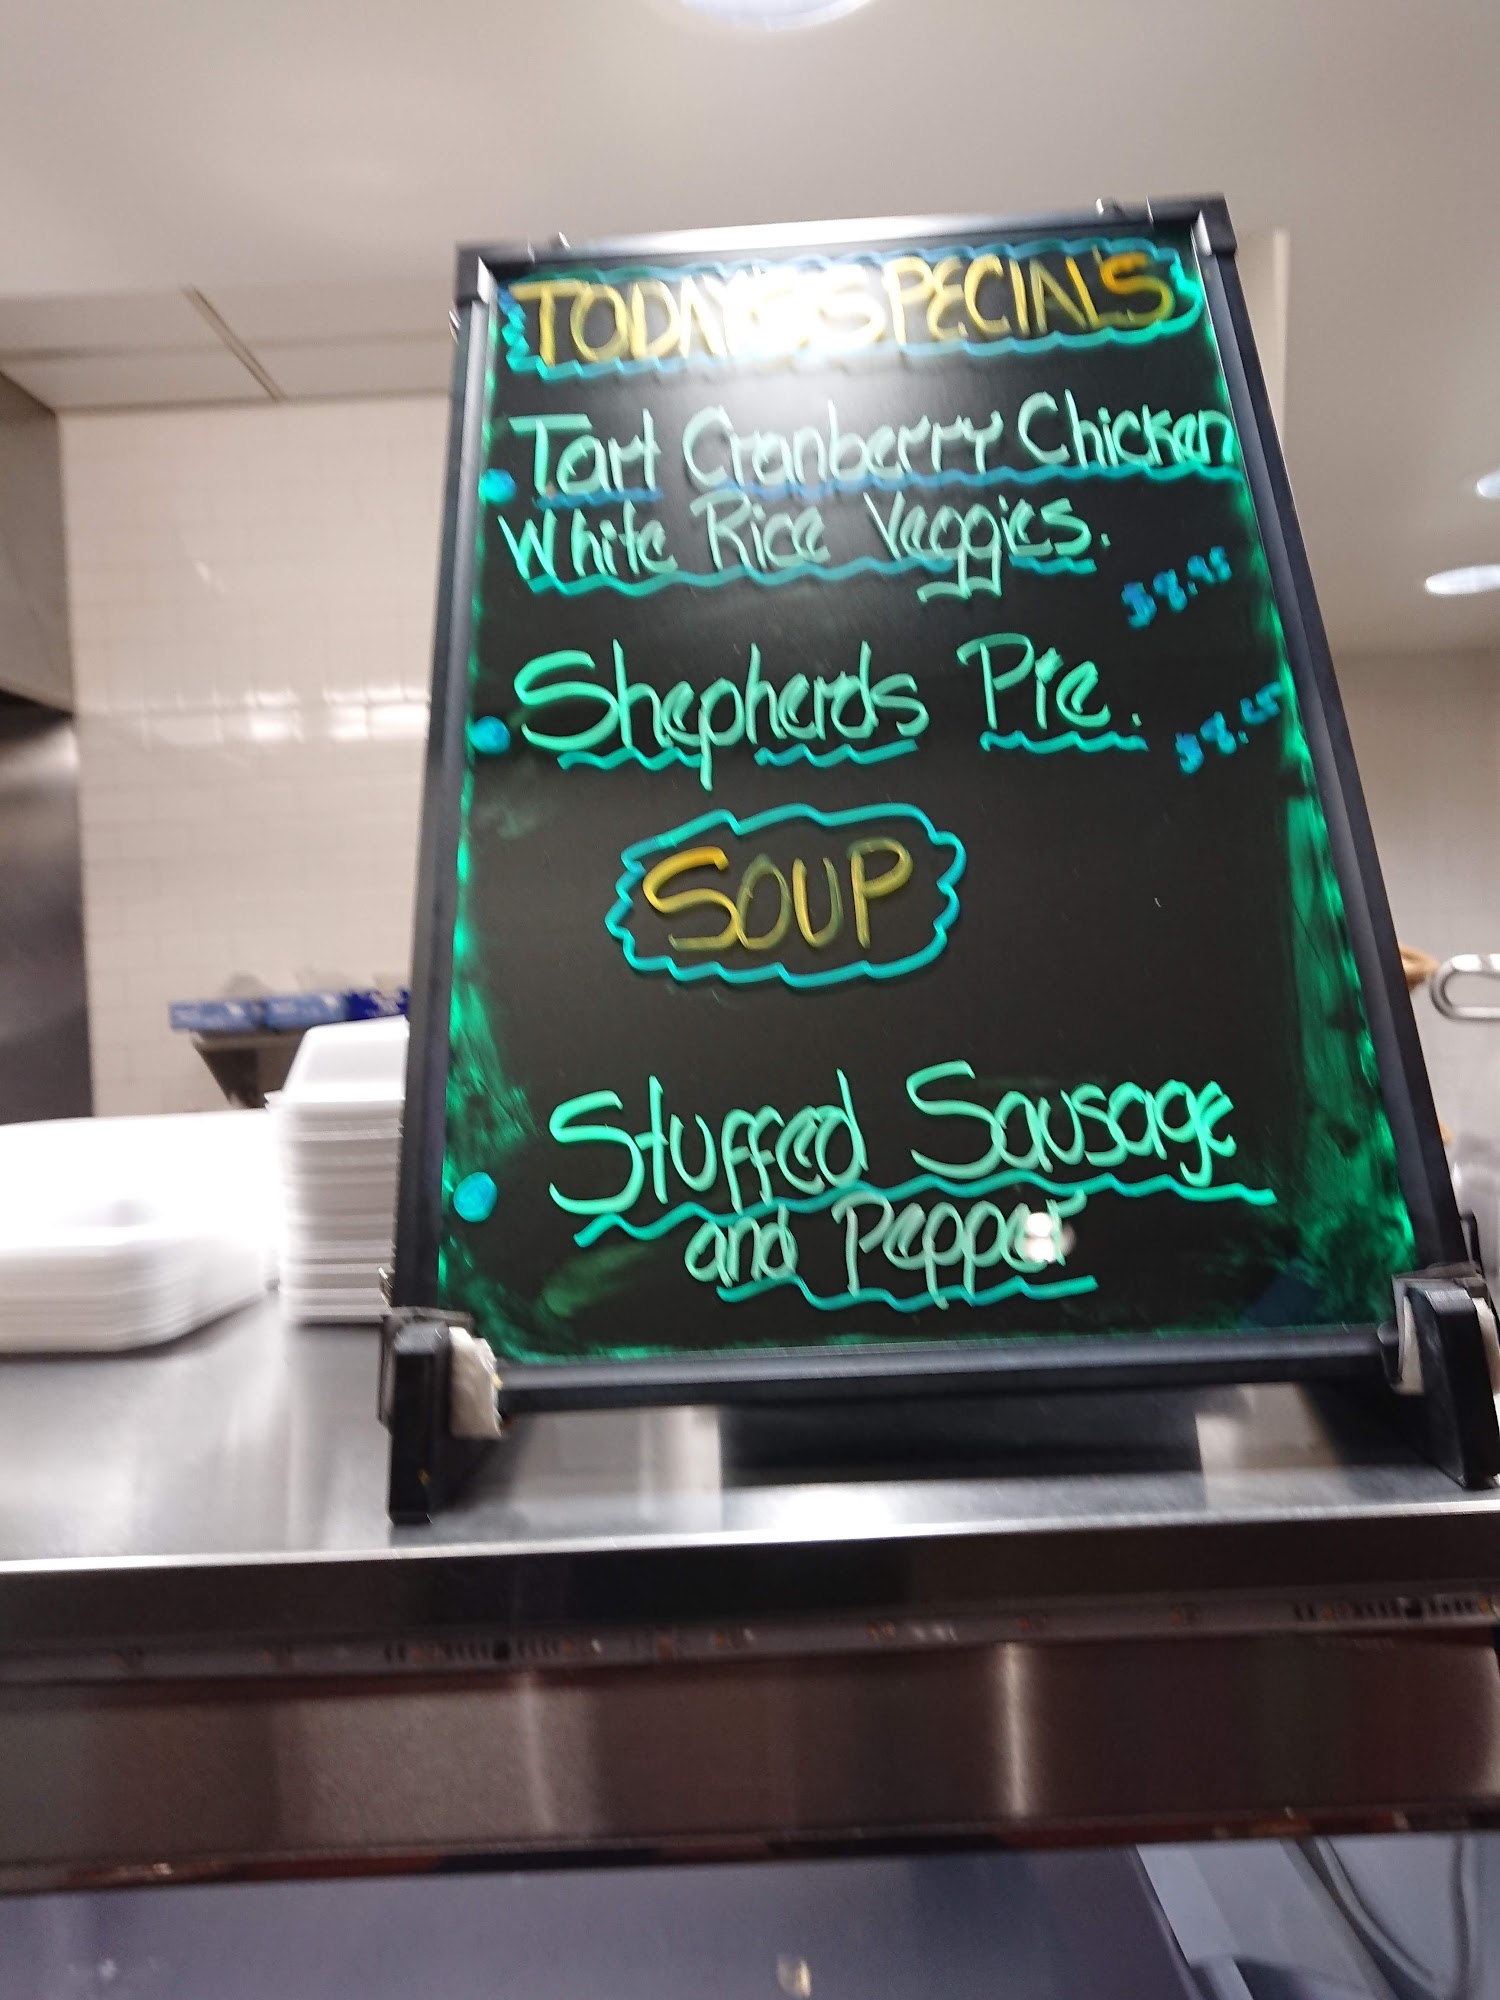 TODAY'S SPECIAL'S
Tart Cranberry Chicken
White Rice Veggies.
$8.95
Shepherds Pie.
SOUP
Stuffed Sausage
and Pepper